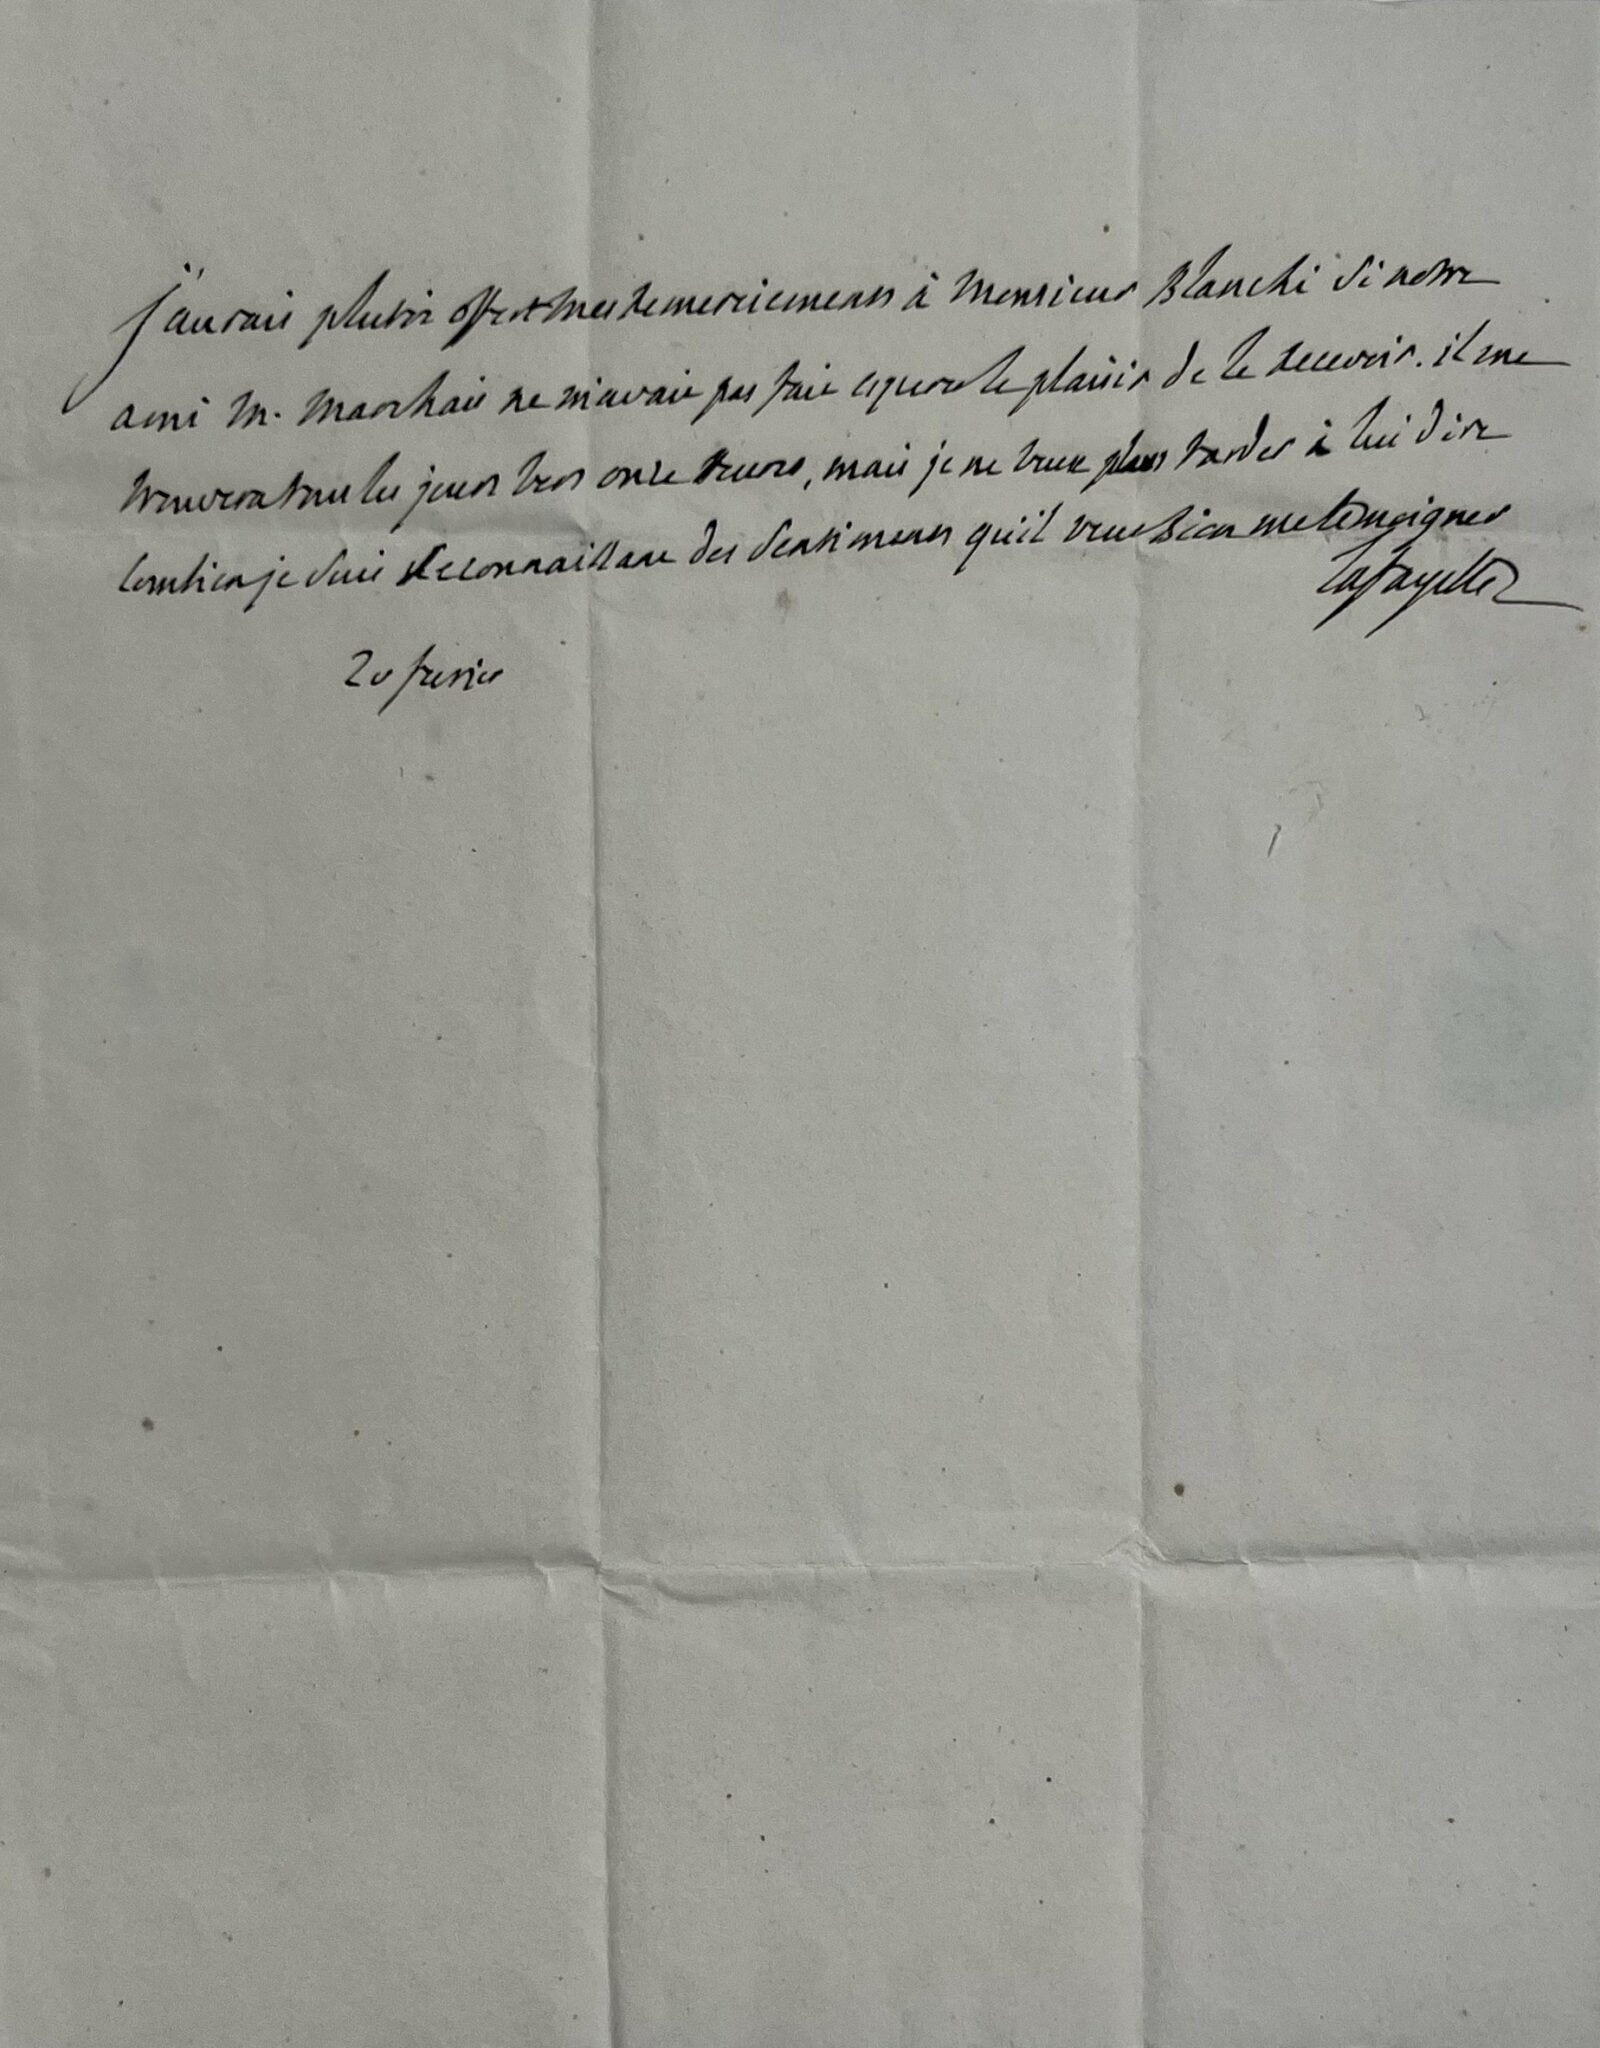 j'aurais plutôt offert mes remerciemens à Monsieur Blanchi si notre
ami M. Marchais ne m'avait pas fait esperer le plaisir de le recevoir. il me
trouvera tous les jours vers onze heures, mais je ne veux plus tarder à lui dire
combien je suis reconnaissant des sentimens qu'il veut bien me temoigner
Lafayette
20 fevrier